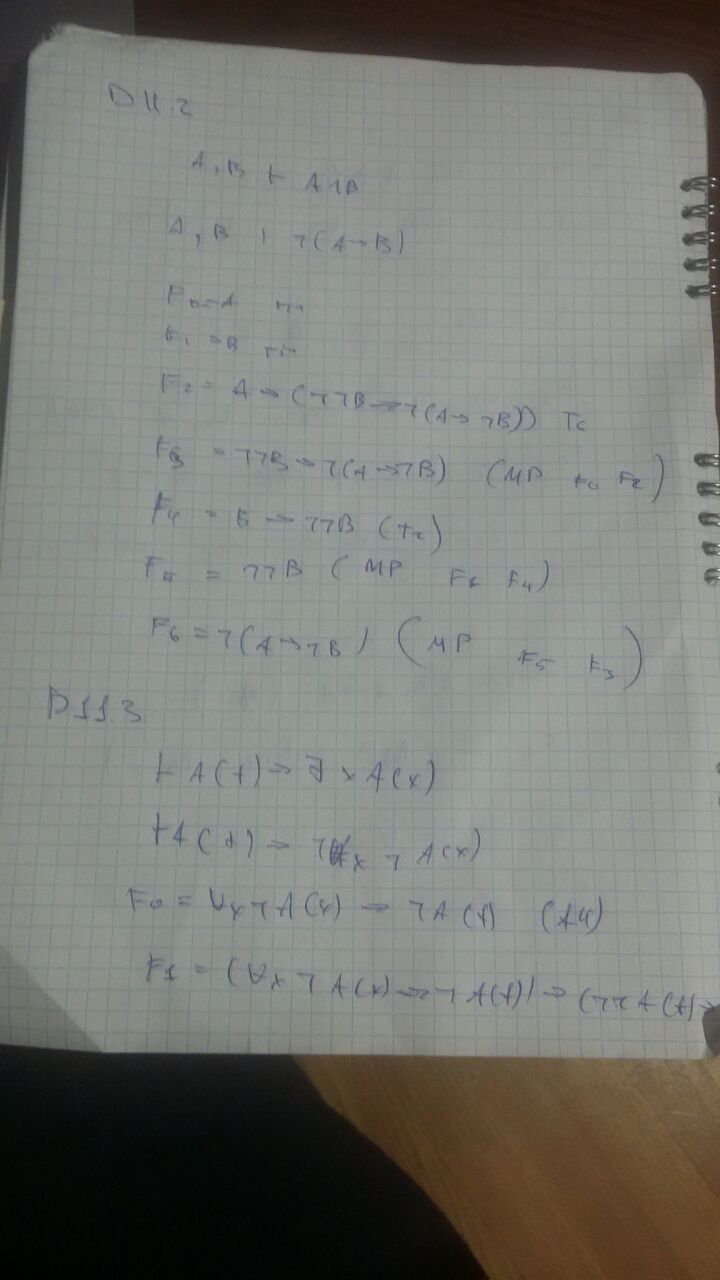 D 11.2
A, B ⊢ A∧B
A, B ⊢ ¬(A→B)
F₀ = A гип
F₁ = B гип
F₂ = A → (¬¬B → ¬(A→¬B)) Tc
F₃ = ¬¬B → ¬(A→¬B) (MP F₀ F₂)
F₄ = B → ¬¬B (Tc)
F₅ = ¬¬B (MP F₁ F₄)
F₆ = ¬(A→¬B) (MP F₅ F₃)
D11.3
⊢ A(t) → ∃x A(x)
⊢ A(t) → ¬∀x ¬A(x)
F₀ = ∀x¬A(x) → ¬A(t) (A4)
F1 = (∀x ¬A(x) → ¬A(t)) → (¬¬A(t) →